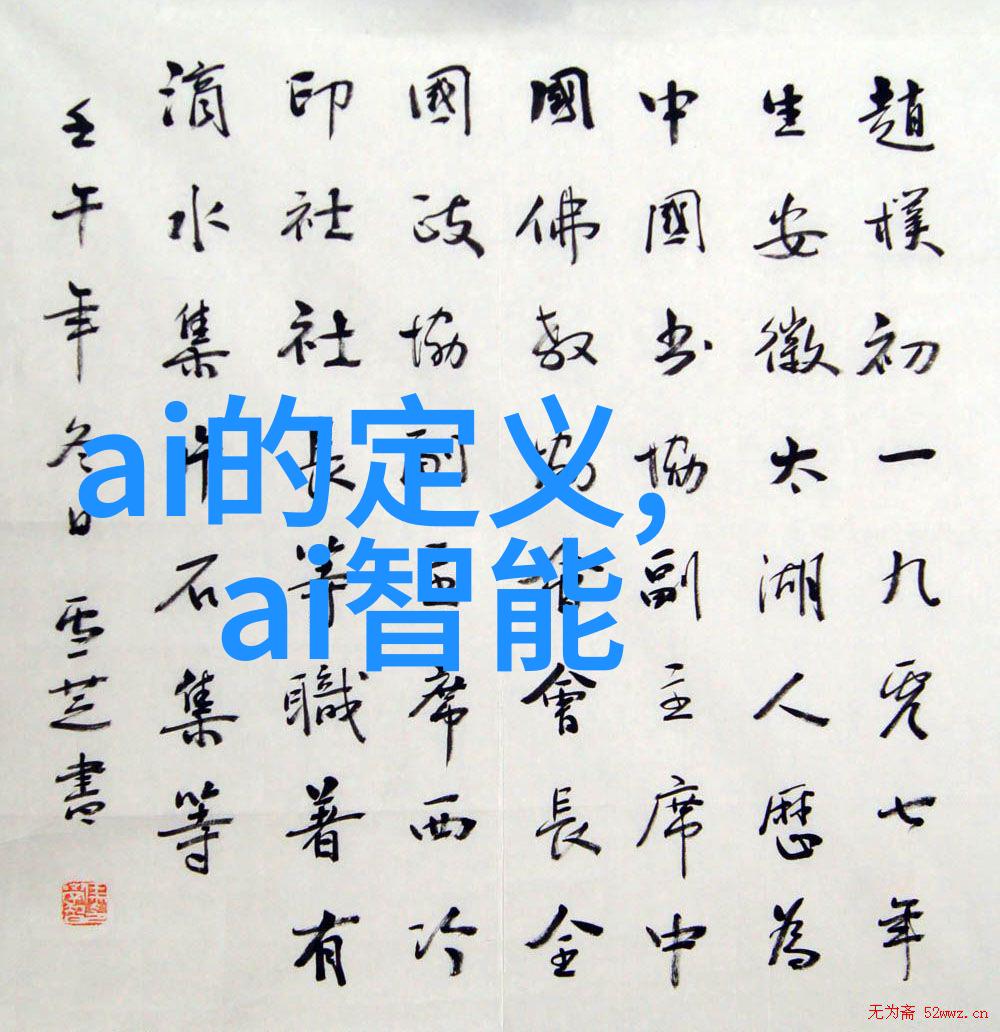 趙樸初一九零七年
生安徽太湖人歷為
中國书協副主席中
國佛教協會會長全
國政協副主席西冷
印社社長等職著有
滴水集片石集等
壬午年冬日 雪芝書
ai的定义,
ai智能
无为斋 52wwz.cn